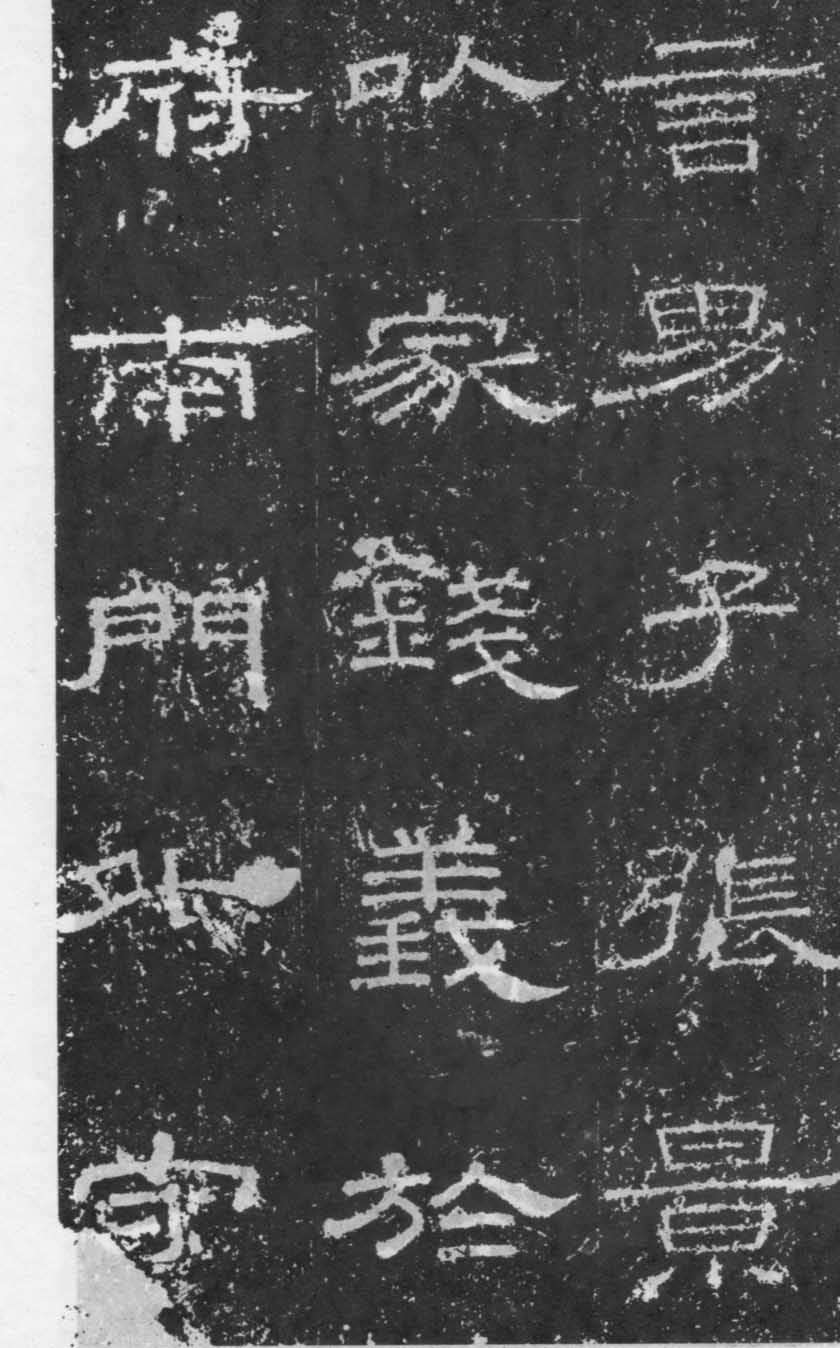 言男子張景
以家錢義於
府南門外守